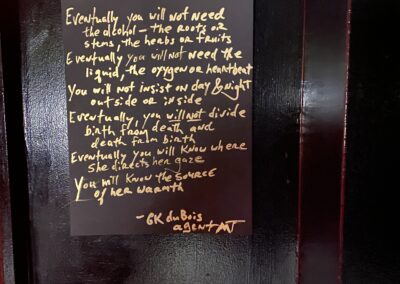 Eventually you will not need
the alcohol — the roots or
stems, the herbs or fruits
Eventually you will not need the
liquid, the oxygen or heartbeat
You will not insist on day & night
outside or inside
Eventually, you will not divide
birth from death and
death from birth
Eventually you will know where
she directs her gaze
You will know the source
of her warmth
- CK duBois
agent MT